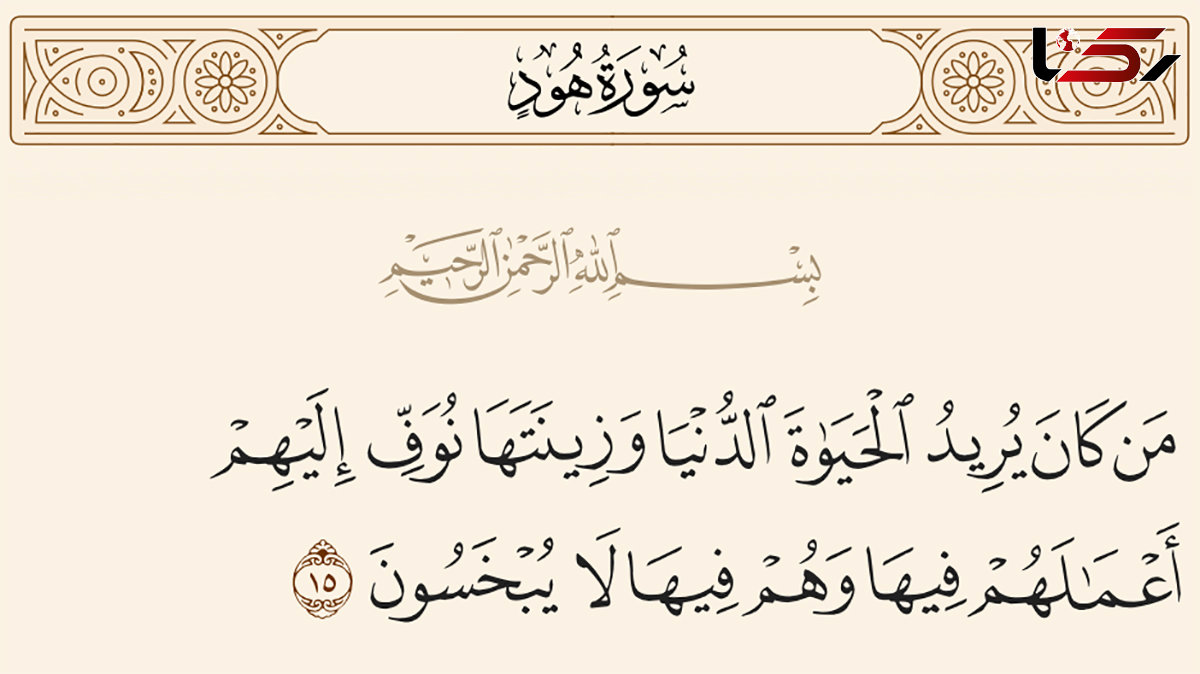 سُورَةُ هُودٍ
رکنا
بِسْمِ ٱللَّهِ ٱلرَّحْمَٰنِ ٱلرَّحِيمِ
مَن كَانَ يُرِيدُ ٱلْحَيَوٰةَ ٱلدُّنْيَا وَزِينَتَهَا نُوَفِّ إِلَيْهِمْ
أَعْمَٰلَهُمْ فِيهَا وَهُمْ فِيهَا لَا يُبْخَسُونَ ١٥